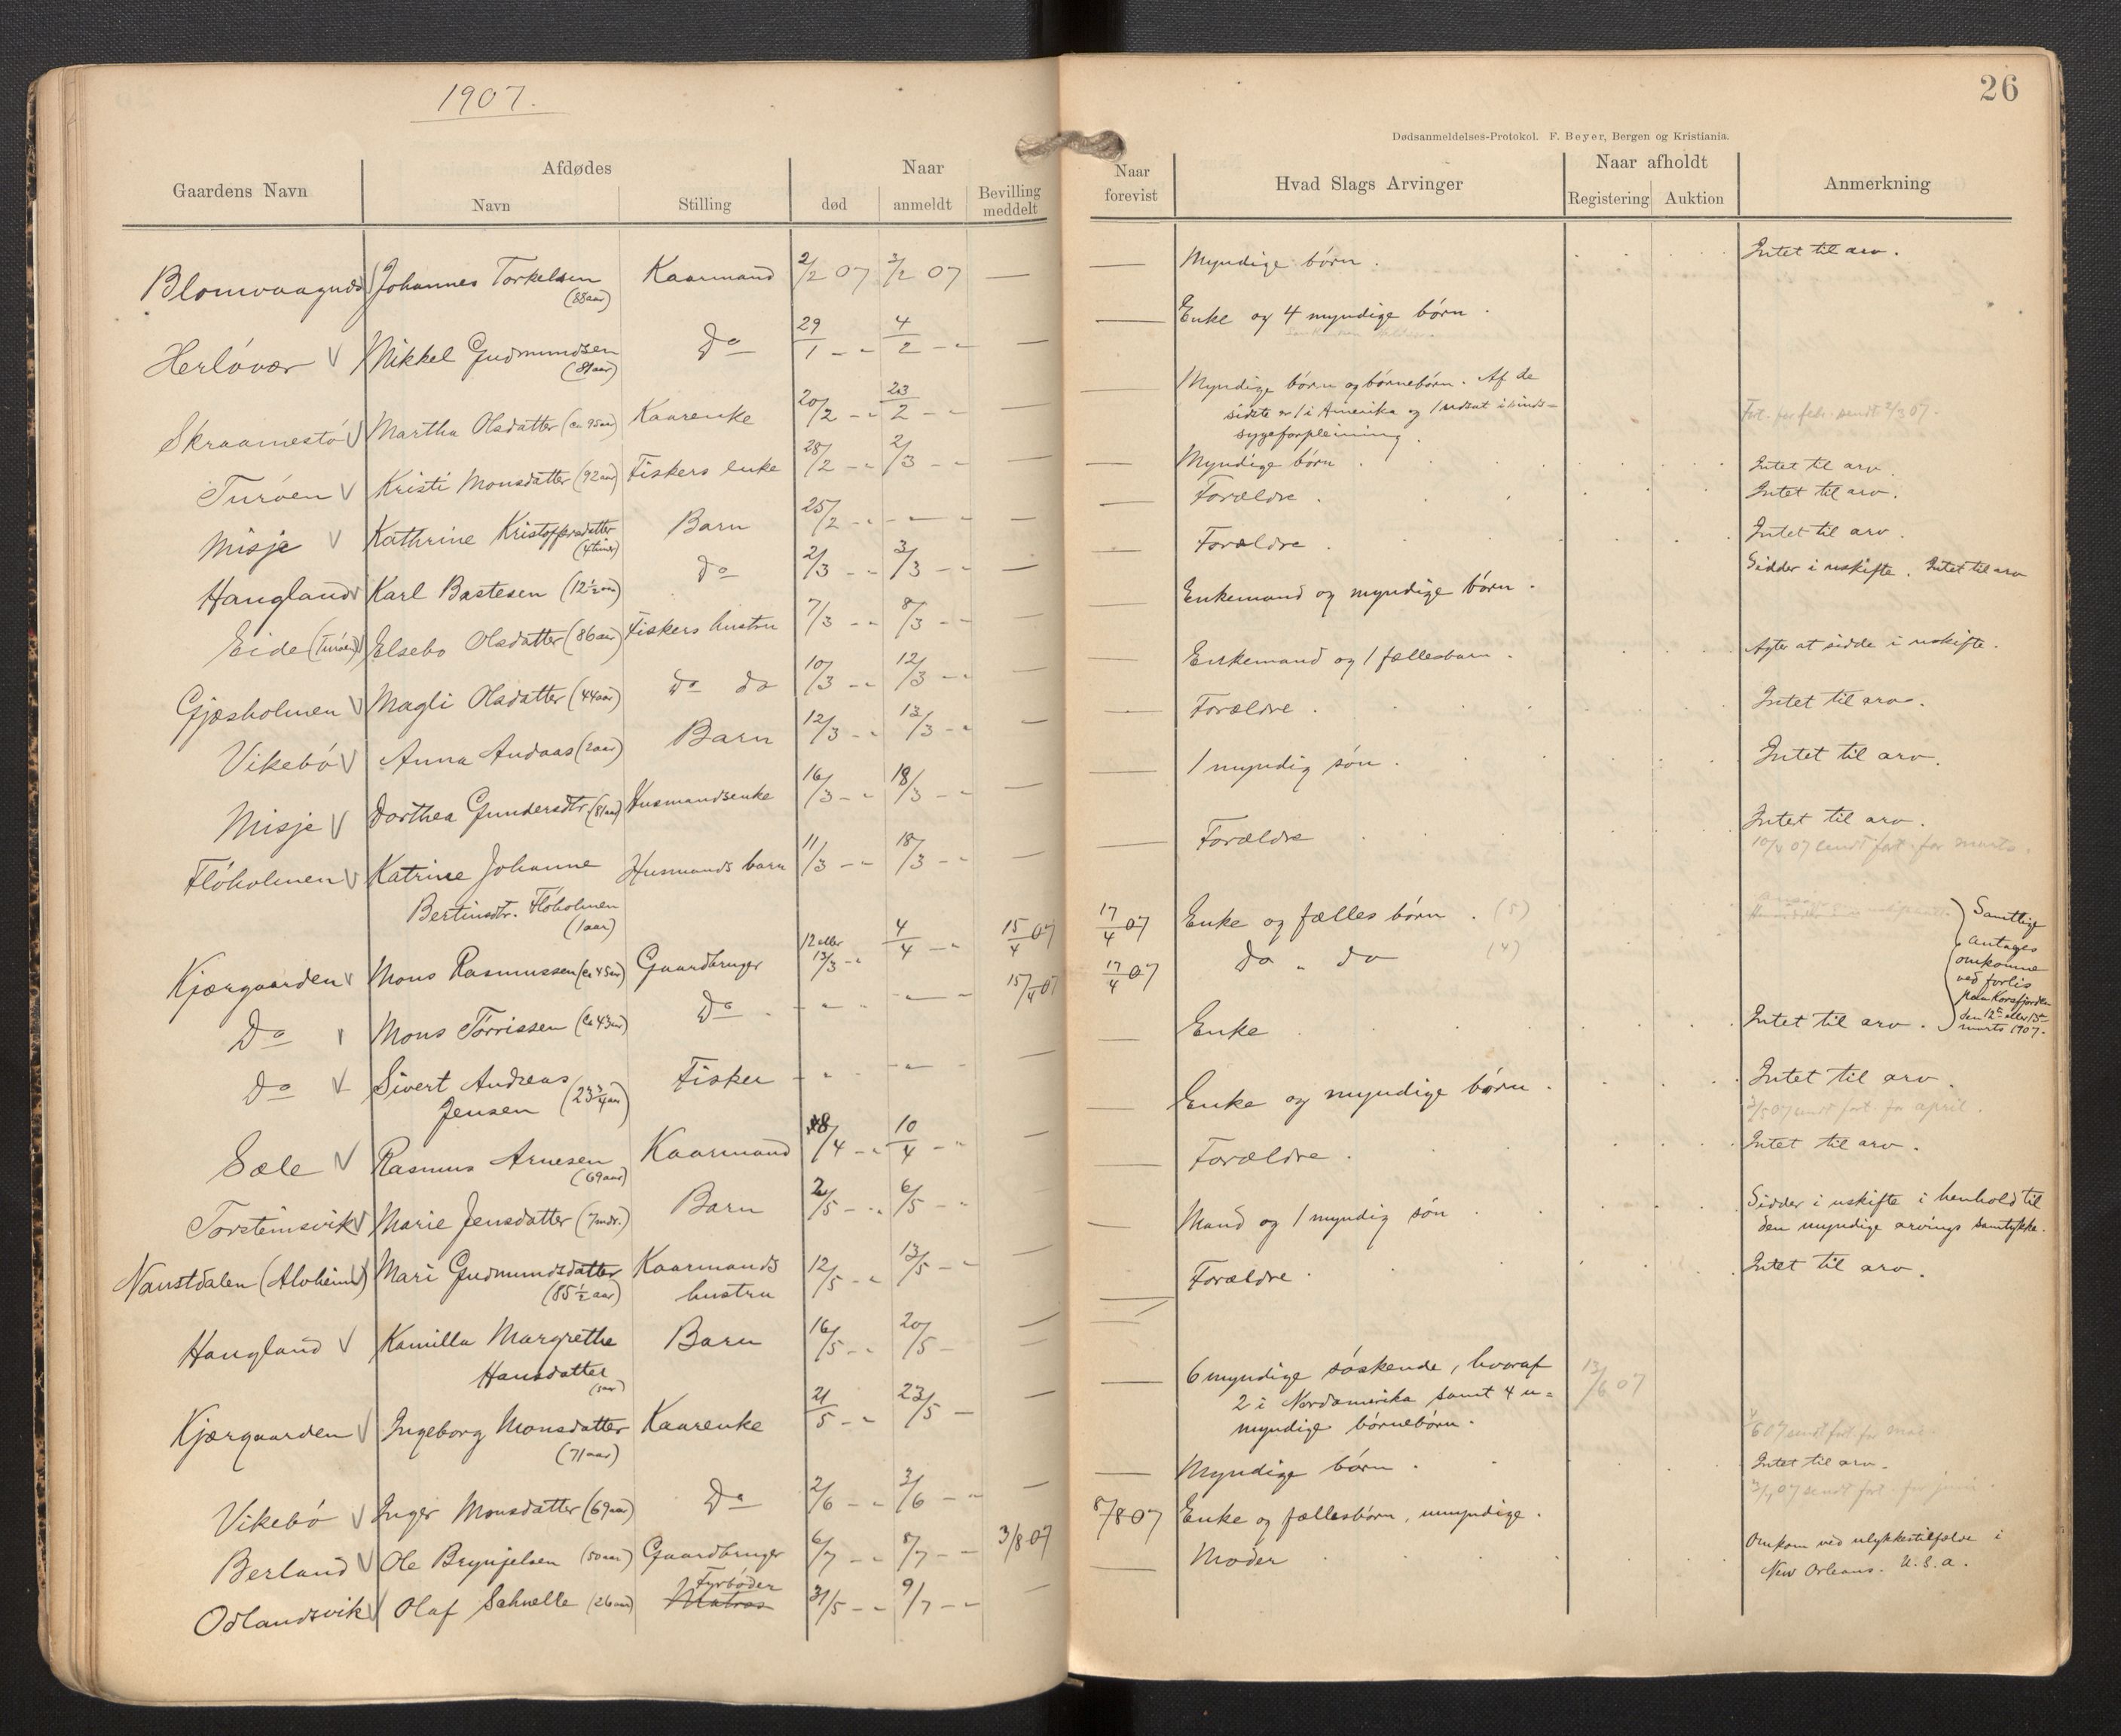 1907.
26
Dødsanmeldelses-Protokol. F. Beyer, Bergen og Kristiania.
Gaardens Navn
Afdødes
Navn
Stilling
Naar
død
anmeldt
Bevilling meddelt
Naar forevist
Hvad Slags Arvinger
Naar afholdt
Registering
Auktion
Anmerkning
Blomvaagnds Johannes Torkelsen (88 aar) Kaarmand 2/2 07 3/2 07 — — Myndige børn. Intet til arv.
Herløvær V Mikkel Gudmundsen (81 aar) Do 29/1 -"- 4/2 -"- — — Enke og 4 myndige børn.
Skraamestø V Martha Olsdatter (ca 95 aar) Kaarenke 20/2 -"- 23/2 -"- — — Myndige børn og børnebørn. Af de
sidste er 1 i Amerika og 1 udsat i sinds=
sygeforpleining. Fort. for febr. sendt 2/3 07.
Turøen V Kristi Monsdatter (92 aar) Fiskers enke 28/2 -"- 2/3 -"- — — Myndige børn. Intet til arv.
Misje V Kathrine Kristoffersdatter (4 timer) Barn 25/2 -"- -"- — — Forældre. Intet til arv.
Haugland V Karl Bastesen (12 1/2 aar) do 2/3 -"- 3/3 -"- — — Forældre. Intet til arv.
Eide (Turøen) V Elsebo Olsdatter (86 aar) Fiskers hustru 7/3 -"- 8/3 -"- — — Enkemand og myndige børn. Sidder i uskifte. Intet til arv
Gjæsholmen V Magli Olsdatter (44 aar) do do 10/3 -"- 12/3 -"- — — Enkemand og 1 fællesbarn. Agter at sidde i uskifte.
Vikebø V Anna Andaas (2 aar) Barn 12/3 -"- 13/3 -"- — — Forældre. Intet til arv.
Misje V Dorthea Gundersdtr. (81 aar) Husmandsenke 16/3 -"- 18/3 -"- — — 1 myndig søn. Intet til arv.
Fløholmen V Katrine Johanne
Bertinsdtr. Fløholmen (1 aar) Husmands barn 11/3 -"- 18/3 -"- — — Forældre Intet til arv.
10/4 07 sendt fort. for marts.
Kjærgaarden V Mons Rasmussen (ca 45 aar) Gaardbruger 12 eller 13/3 -"- 4/4 -"- 15/4 07 17/4 07 Enke og fælles børn. (5)
Do V Mons Tørrissen (ca 43 aar) Do -"- -"- 15/4 07 17/4 07 Do " do (4)
Do V Sivert Andreas
Jensen (23 3/4 aar) Fisker -"- -"- — — Enke Intet til arv.
Samtlige
antages
omkomne
ved forlis
Korsfjorden
den 12te eller 13de
marts 1907.
Sæle V Rasmus Arnesen (69 aar) Kaarmand 8/4 -"- 10/4 -"- — — Enke og myndige børn. Intet til arv.
3/5 07 sendt fort. for april.
Torsteinsvik V Marie Jensdatter (7 mdr.) Barn 2/5 -"- 6/5 -"- — — Forældre. Intet til arv.
Naustdalen (Alvheim) Mari Gudmundsdatter (85 1/2 aar) Kaarmands
hustru 12/5 -"- 13/5 -"- — — Mand og 1 myndig søn. Sidder i uskifte i henhold til
den myndige arvings samtykke.
Haugland V Kamilla Margrethe
Hansdatter Barn 16/5 -"- 20/5 - — — Forældre. Intet til arv.
Kjærgaarden V Ingeborg Monsdatter (71 aar) Kaarenke 21/5 -"- 23/5 — — — 6 myndige søskende, hvoraf
2 i Nordamerika samt 4 u=
myndige børnebørn. 13/6 07
/6 07 sendt fort. for mai.
Vikebø V Inger Monsdatter (69 aar) Do 2/6 -"- 3/6 -"- — — Myndige børn. Intet til arv.
3/7 07 sendt fort. for juni.
Berland V Ole Brynjelsen (50 aar) Gaardbruger 6/7 -"- 8/7 -"- 3/8 07 8/8 07 Enke og fællesbørn, umyndige.
Odlandsvik V Olaf Schnelle (26 aar) Matros Fyrbøder 31/5 -"- 9/7 -"- — — Moder Omkom ved ulykkestilfælde i
New Orleans. U.S.a.